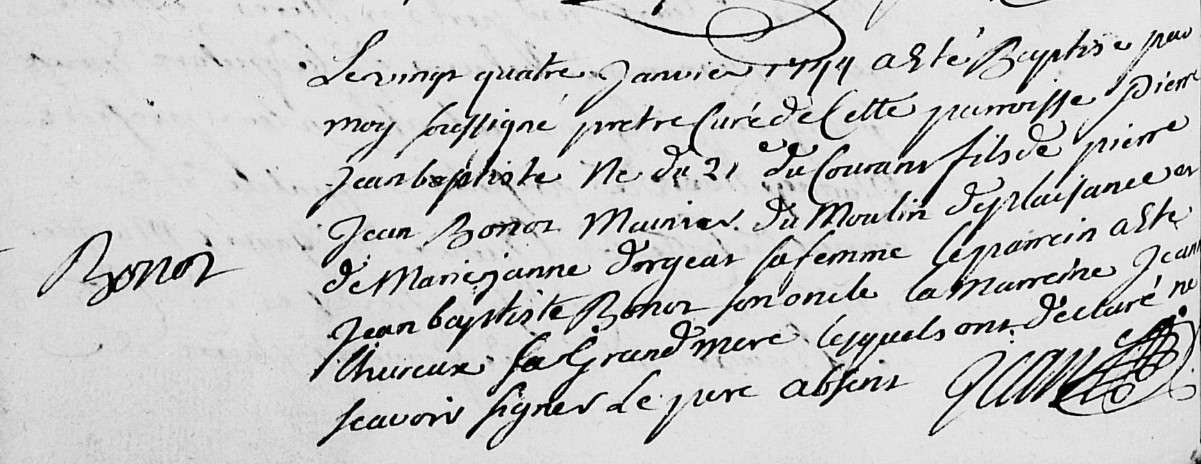 Le vingt quatre Janvier 1744 a Eté Baptise par
moy soussigné pretre Curé de Cette parroisse pierre
Jean baptiste Ne du 21e du Courant fils de pierre
Jean Bonot Munier du Moulin de plaisance et
de Marie janne dorgeat sa femme le parrein a Eté
Bonot
Jean baptiste Bonot son oncle la Marreine Jeanne
sa Grand mere lesquels ont déclaré ne
scavoir signer Le pere absent